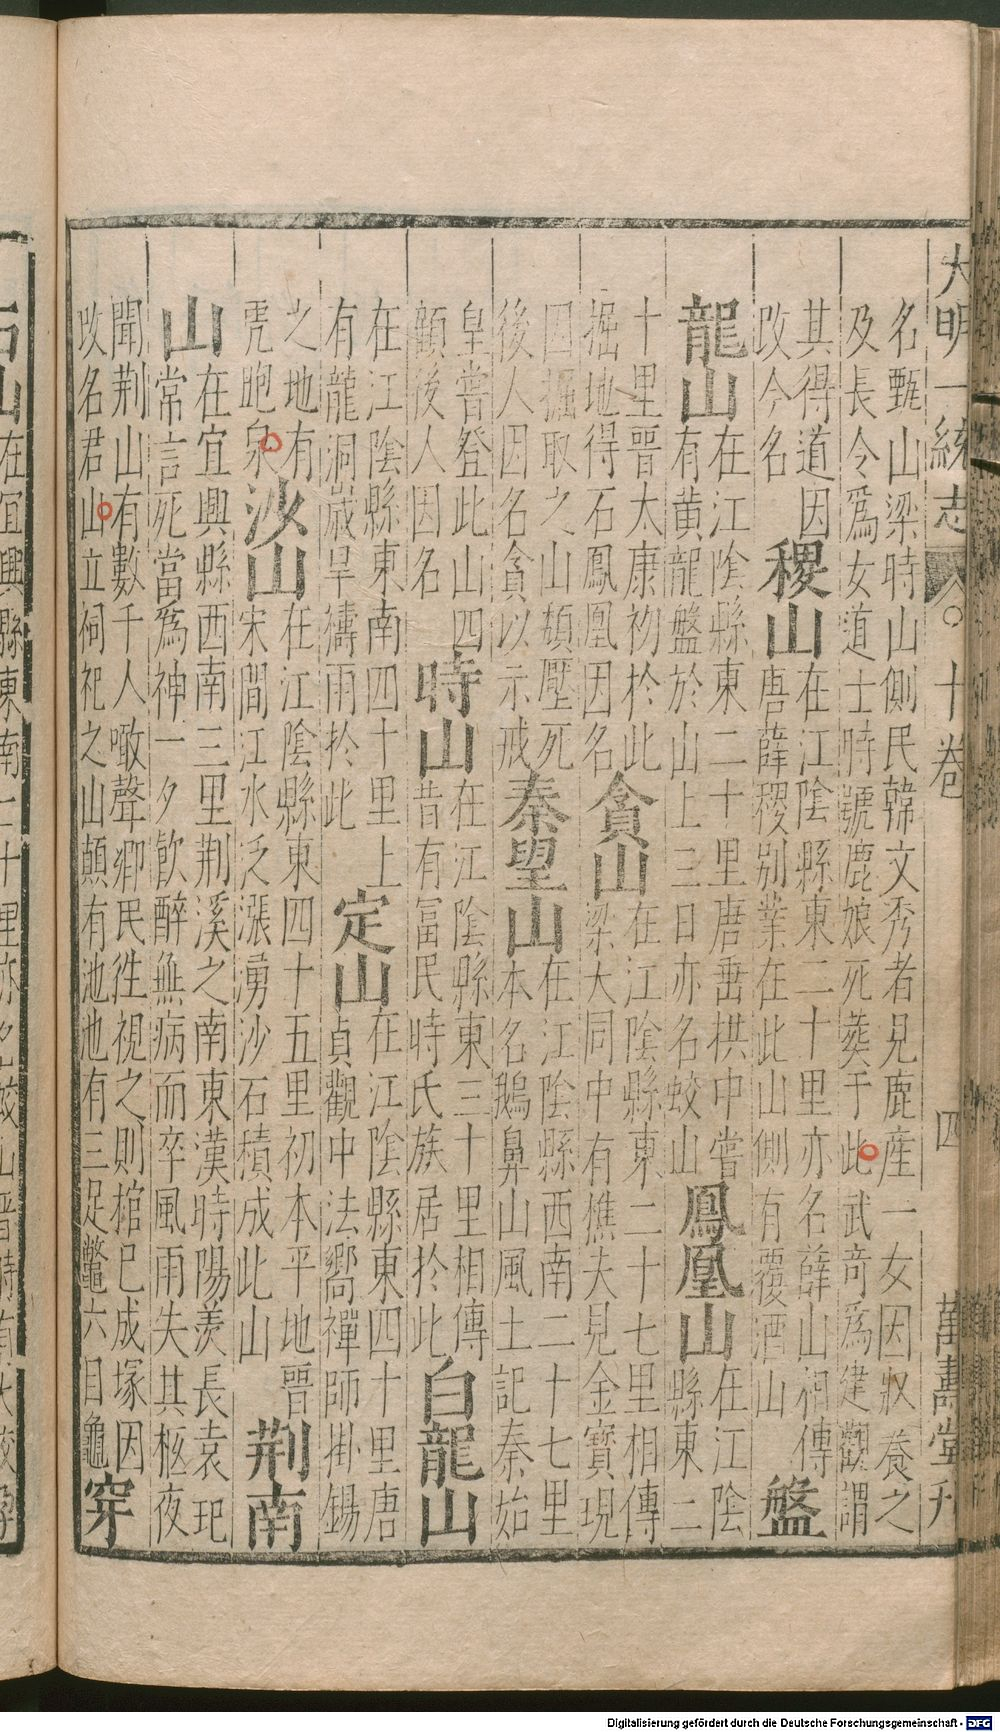 大明一統志 八○十卷 四 萬壽堂刊
名甄山梁時山側民韓文秀者見鹿産一女因收養之
及長令爲女道士時號鹿娘死葬于此武帝爲建觀謂
其得道因
改今名
稷山
在江陰縣東二十里亦名薛山祠傳
唐薛稷别業在此山側有覆酒山
盤
龍山
在江陰縣東二十里唐垂拱中嘗
有黄龍盤於山上三日亦名蛟山
鳳凰山
在江陰
縣東二
十里晋太康初於此
掘地得石鳳凰因名
貪山
在江陰縣東二十七里相傳
梁大同中有樵夫見金寶現
因掘取之山頽壓死
後人因名貪以示戒
秦望山
在江陰縣西南二十七里
本名鵝鼻山風土記秦始
皇嘗登此山四
顧後人因名
時山
在江陰縣東三十里相傳
昔有冨民時氏族居於此
白龍山
在江陰縣東南四十里上
有龍洞歲旱禱雨於此
定山
在江陰縣東四十里唐
貞觀中法嚮禪師掛錫
之地有
虎跑泉
沙山
在江陰縣東四十五里初本平地晋
宋間江水乏漲湧沙石積成此山
荆南
山
在宜興縣西南三里荆溪之南東漢時陽羡長袁玘
常言死當爲神一夕飲醉無病而卒風雨失其柩夜
聞荆山有數千人噉聲鄉民徃視之則棺已成塚因
改名君山立祠祀之山顛有池池有三足鼈六目龜
穿
石山
在宜興縣東南二十里亦名
Digitalisierung gefördert durch die Deutsche Forschungsgemeinschaft - DFG